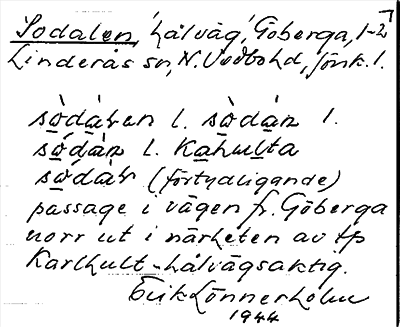 Sodalen, 'hålväg', Göberga, 1-2
Linderås sn, N. Vedbo hd, Jönk. l.
sò̱dà̱ren l. sò̱dà̱n l.
só̱dá̱n l. Ka̱hu̱lta
só̱dà̱r (förtydligande)
passage i vägen fr. Göberga
norr ut i närheten av tp
Karlhult - hålvägsaktig.
Erik Lönnerholm
1944